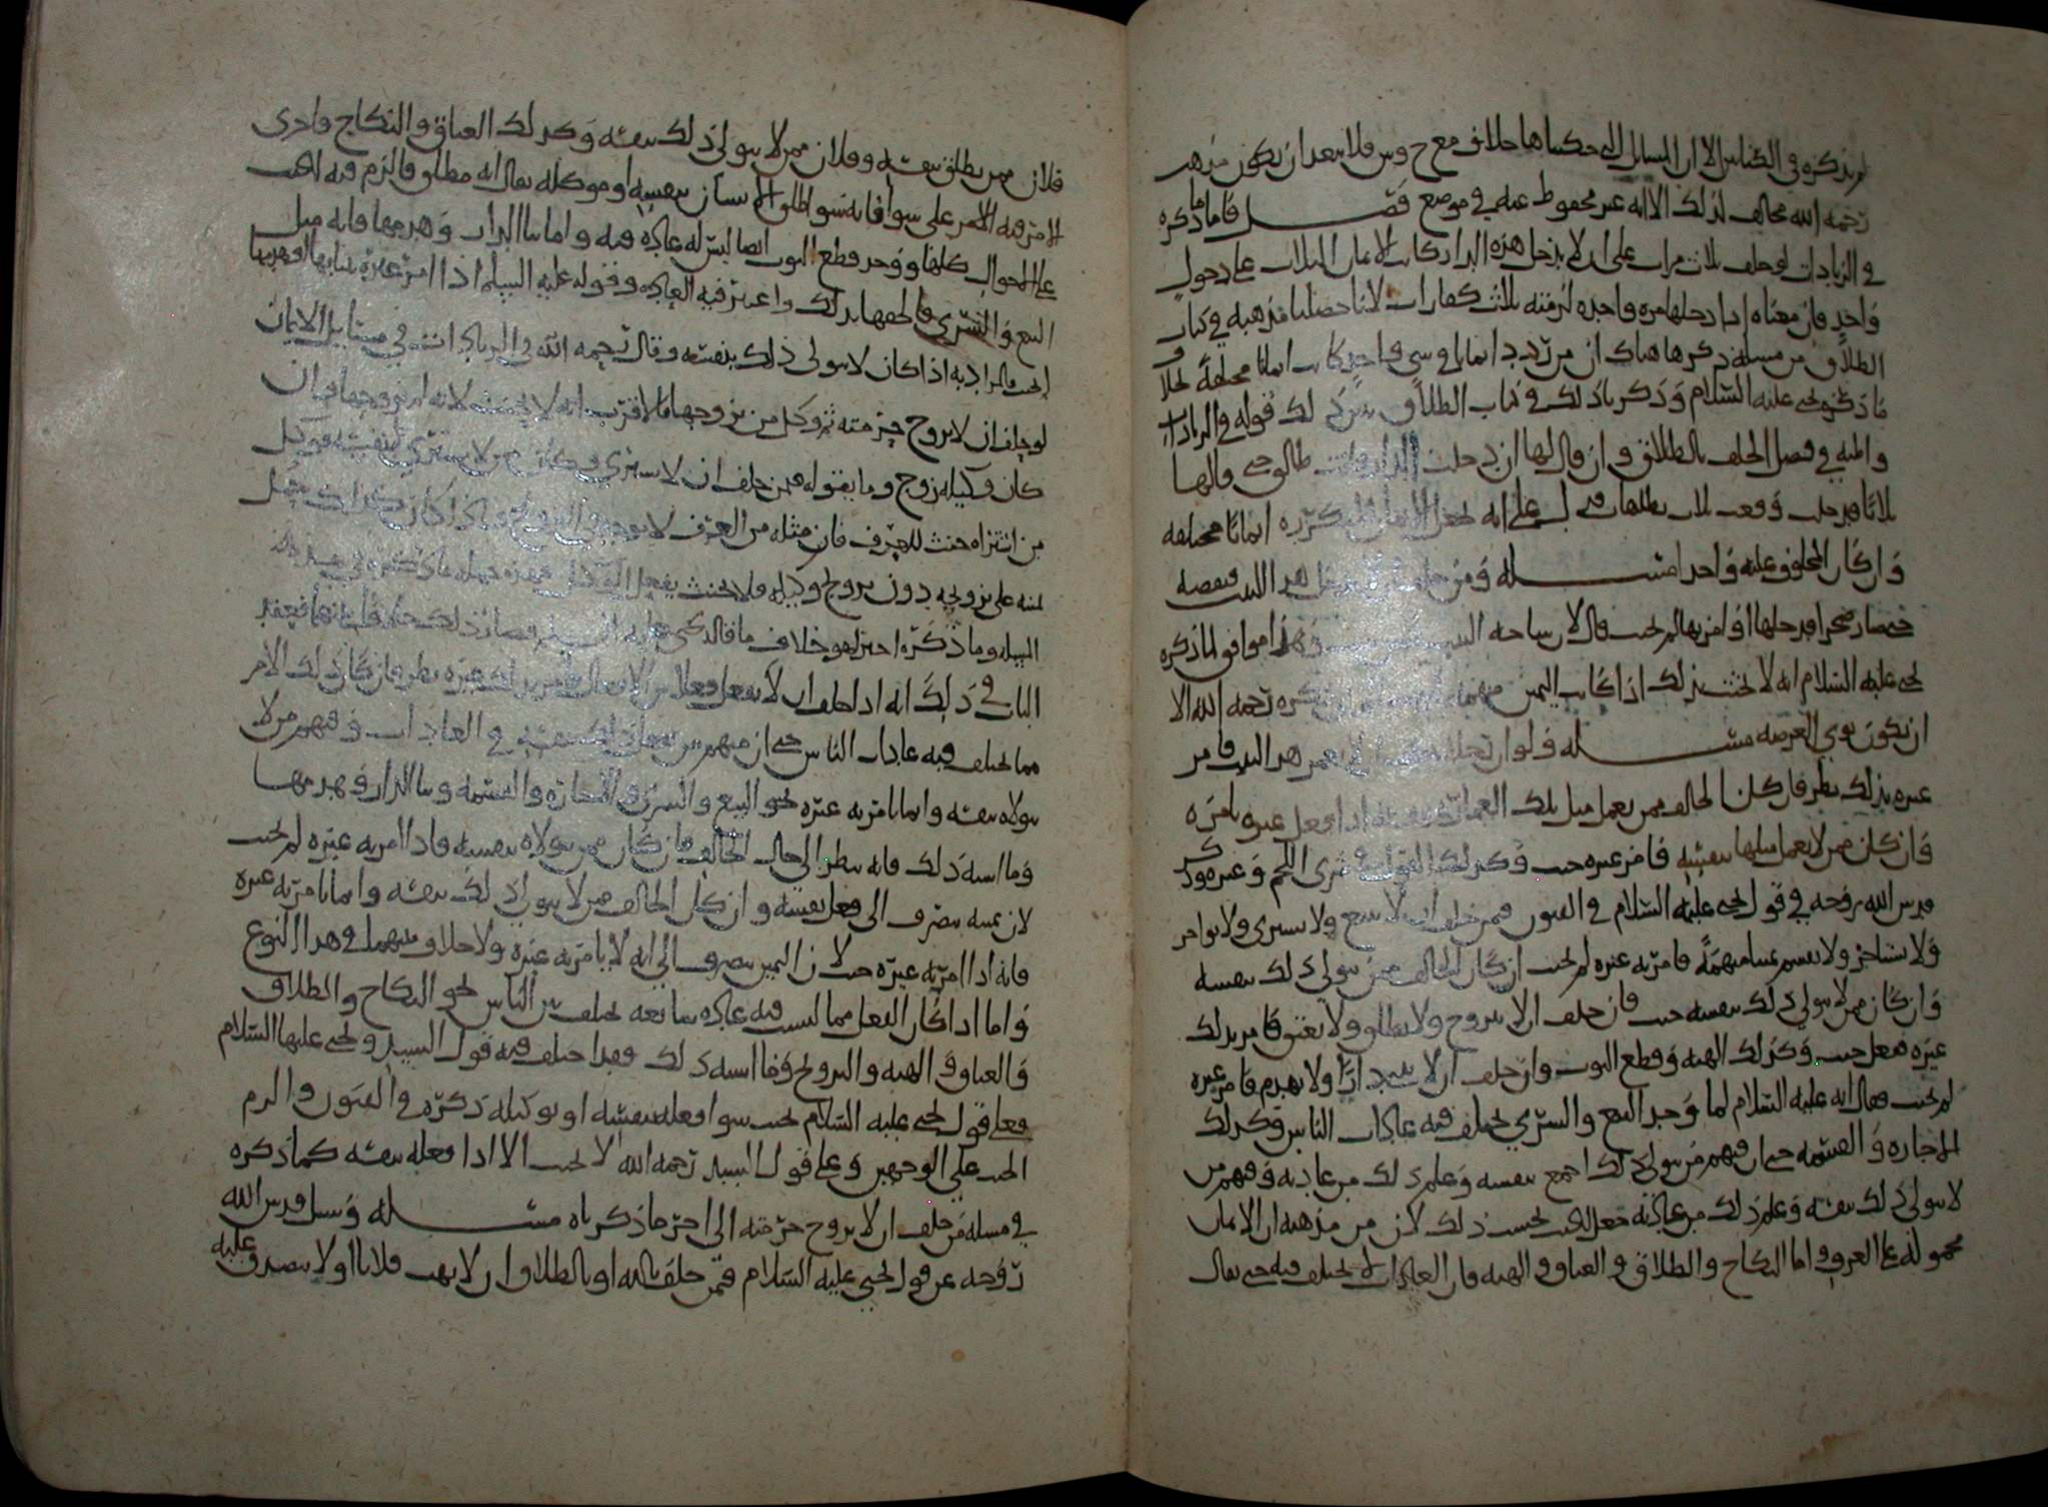 لم يذكره في الكتاب الا ان المسايل التي حكيناها خلاف مع ح وس فلا يبعد ان يكون مذهب
رحمه الله مخالف لذلك الا انه غير محفوظ عنه في موضع فصل فاما ما ذكره
في الزيادات لو حلف ثلاث مرات على ان لا يدخل هذه الدار كانت الايمان الثلاث على دخول
واحد فان معناه اذا دخلها مره واحده لزمته ثلاث كفارات لانا حصلنا مذهبه في كتاب
الطلاق من مسلة ذكرها هناك ان من ردد ايمانا في شي واحد كانت ايمانا مختلفة خلاف
ما ذكره يحي عليه السلام وذكرنا ذلك في كتاب الطلاق قوله في الزيادات
والهبه في فصل الحلف بالطلاق وان قال لها ان دخلت الدار فانت طالق حتى قالها
ثلاثا فدخلت وقعت ثلاث على انه يجعل ايمانا مختلفه
وان كان المحلوف عليه واحدا مسله ومن حلف هذا البيت فنقضه
فصار صحرا فدخلها او امر بها لم يحنث قال لان ساحه البيت وهذا موافق لما ذكره
يحي عليه السلام انه لا يحنث بذلك اذا كانت اليمين رحمه الله الا
ان يكون نوى العرصه مسله ولو ان رجلا هذا البيت فامر
غيره بذلك نظر فان كان الحالف ممن يعمل مثل تلك العماره بنفسه اذا فعل غيره بامره
وان كان ممن لا يعمل مثلها بنفسه فامر غيره حنث وكذلك القول في شرى اللحم وغيره وذكر
قدس الله روحه في قول يحي عليه السلام في الفنون فمن حلف ان لا يبيع ولا يشتري ولا يواجر
ولا يستاجر ولا يقسم فامر به غيره لم يحنث ان كان الحالف ممن يتولى ذلك بنفسه
وان كان ممن لا يتولى ذلك بنفسه حنث فان حلف ان لا يتزوج ولا يطلق ولا يعتق فامر بذلك
غيره ففعل حنث وكذلك الهبه وقطع الثوب وان حلف ان لا يبني دارا ولا يهدم فامر غيره
لم يحنث فقال انه عليه السلام لما وجد البيع والشرى يختلف فيه عادات الناس وكذلك
الاجاره والقسمه حتى ان فيهم من يتولى ذلك اجمع بنفسه وعلم ذلك من عادته وفيهم من
لا يتولى ذلك بنفسه وعلم ذلك من عادته جعل الحنث بحسب ذلك لان من مذهبه ان الايمان
محموله على العرف واما النكاح والطلاق والعتاق والهبه فان العادات لا يختلف فيه حتى يقال
فلان ممن يطلق بنفسه وفلان ممن لا يتولى ذلك بنفسه وكذلك العتاق والنكاح فاجرى
الامر فيه الامر على سوا فانه سوا طلق الانسان بنفسه او موكله يقال انه مطلق فالزم فيه الحنث
على الاحوال كلها ووجد قطع الثوب ايضا ليس له عاده فيه واما بنا الدار وهدمها فانه مثل
البيع والشرى فالحقها بذلك واعتبر فيه العاده وقوله عليه السلم اذا امر غيره ببنايها او هدمها
الحنث فالمراد به اذا كان لا يتولى ذلك بنفسه وقال رحمه الله في الزيادات في مسايل الايمان
لو حلف ان لا يزوج حرمته ثم وكل من يزوجها فالاقرب انه لا يحنث لانه لم يزوجها وان
كان وكيله زوج وما نقوله فمن حلف ان لا يشتري وكان ممن لا يشتري بنفسه فوكل
من اشتراه حنث للعرف فان مثله من العرف لا يوجد في التزويج
يمينه على تزويجه دون تزويج وكيله فلا يحنث بفعل الوكيل
المسله وما ذكره اخيرا هو خلاف ما قاله يحي عليه السلم فصار ذلك
الباب في ذلك انه اذا حلف ان لا يفعل فعلا من الافعال فامر بذلك غيره نظر فان كان ذلك الامر
مما يختلف فيه عادات الناس حتى ان فيهم من يفعل ذلك بنفسه في العادات وفيهم من لا
يتولاه بنفسه وانما يامر به غيره نحو البيع والشرى والاجاره والقسمه وبنا الدار وهدمها
وما اشبه ذلك فانه ينظر الى حال الحالف فان كان ممن يتولاه بنفسه فاذا امر به غيره لم يحنث
لان يمينه تصرف الى فعل نفسه وان كان الحالف ممن لا يتولى ذلك بنفسه وانما يامر به غيره
فانه اذا امر به غيره حنث لان اليمين تصرف الى انه لا يامر به غيره ولا خلاف بينهما في هذا النوع
واما اذا كان الفعل مما ليست فيه عاده متابعه يختلف بين الناس نحو النكاح والطلاق
والعتاق والهبه والتزويج وما اشبه ذلك فهذا يختلف فيه قول السيد ويحي عليهما السلام
فعلى قول يحي عليه السلام يحنث سوا فعله بنفسه او بوكيله ذكره في الفنون والزم
الحنث على الوجهين وعلى قول السيد رحمه الله لا يحنث الا اذا فعله بنفسه كما ذكره
في مسله من حلف ان لا يزوج حرمته الى اخر ما ذكرناه مسله وسيل قدس الله
روحه عن قول يحيى عليه السلام فمن حلف بالله او بالطلاق ان لا يهب فلانا او لا يتصدق عليه